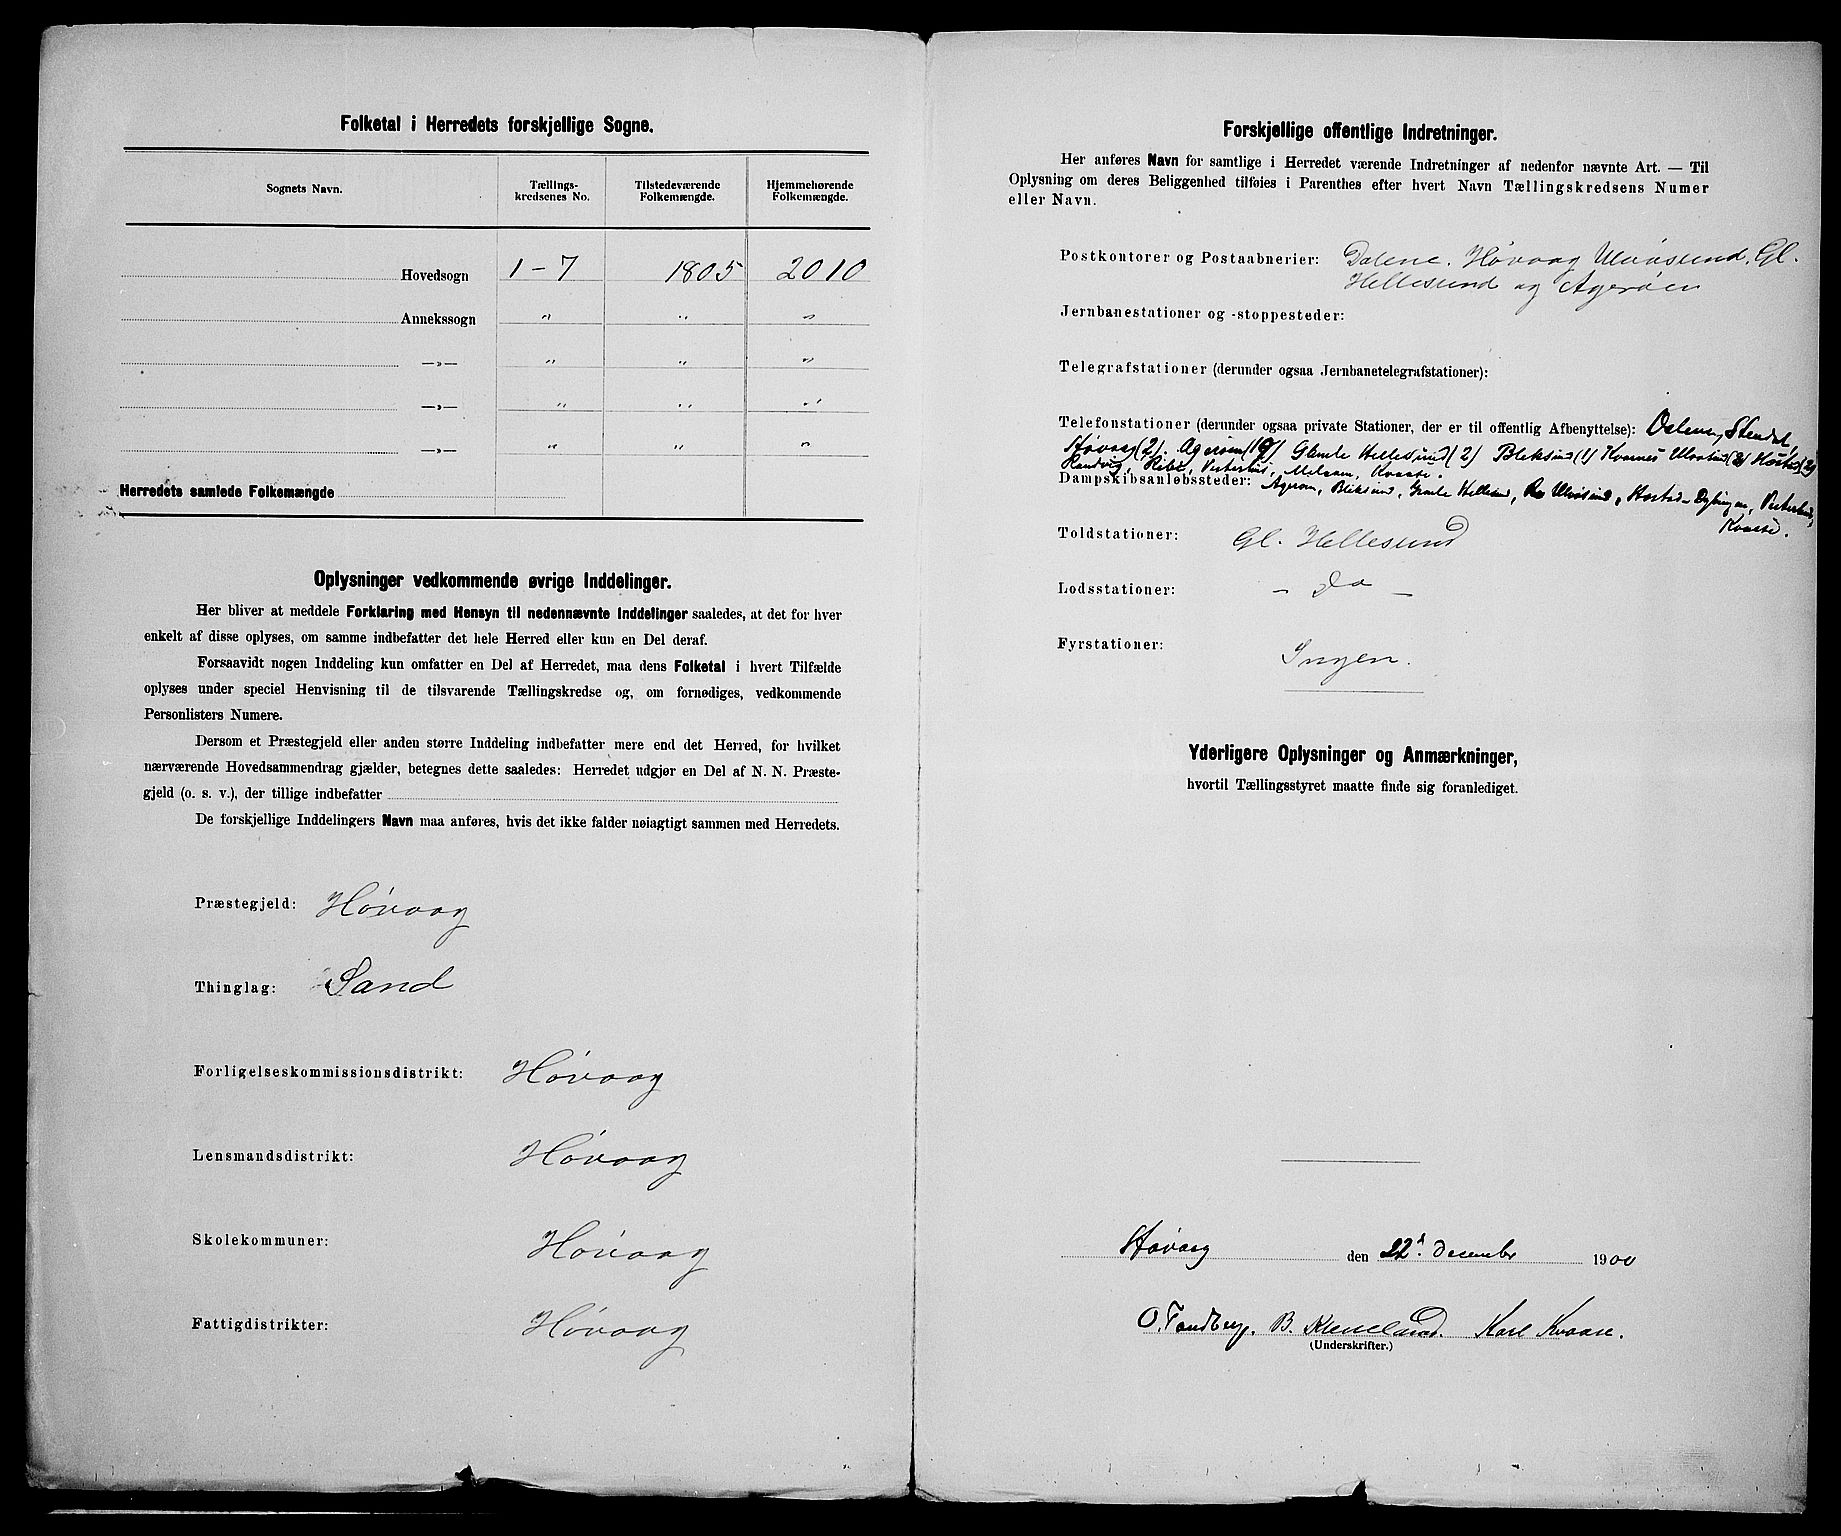 Folketal i Herredets forskjellige Sogne.
Sognets Navn. Tællings-kredsenes No. Tilstedeværende Folkemængde. Hjemmehørende Folkemængde.
Hovedsogn 1-7 1805 2010
Annekssogn " " "
—„— " " "
—„— " " "
—„— " " "
Herredets samlede Folkemængde
Oplysninger vedkommende øvrige Inddelinger.
Her bliver at meddele Forklaring med Hensyn til nedennævnte Inddelinger saaledes, at det for hver
enkelt af disse oplyses, om samme indbefatter det hele Herred eller kun en Del deraf.
Forsaavidt nogen Inddeling kun omfatter en Del af Herredet, maa dens Folketal i hvert Tilfælde
oplyses under speciel Henvisning til de tilsvarende Tællingskredse og, om fornødiges, vedkommende
Personlisters Numere.
Dersom et Præstegjeld eller anden større Inddeling indbefatter mere end det Herred, for hvilket
nærværende Hovedsammendrag gjælder, betegnes dette saaledes: Herredet udgjør en Del af N. N. Præste-
gjeld (o. s. v.), der tillige indbefatter
De forskjellige Inddelingers Navn maa anføres, hvis det ikke falder nøiagtigt sammen med Herredets.
Præstegjeld: Høvaag
Thinglag: Sand
Forligelseskommissionsdistrikt: Høvaag
Lensmandsdistrikt: Høvaag
Skolekommuner: Høvaag
Fattigdistrikter: Høvaag
Forskjellige offentlige Indretninger.
Her anføres Navn for samtlige i Herredet værende Indretninger af nedenfor nævnte Art. — Til
Oplysning om deres Beliggenhed tilføies i Parenthes efter hvert Navn Tællingskredsens Numer
eller Navn.
Postkontorer og Postaabnerier: Dalene. Høvaag Ulvøsund. Gl.
Hellesund og Agerøen
Jernbanestationer og -stoppesteder:
Telegrafstationer (derunder ogsaa Jernbanetelegrafstationer):
Telefonstationer (derunder ogsaa private Stationer, der er til offentlig Afbenyttelse): Dalene, Stendal,
Høvaag (2). Agerøen Gamle Hellesund (2) Bleksund (1) Kvarnes Ulvøsund Hæstad
Randvig, Ribe, Vesterhus, Kvaase.
Dampskibsanløbssteder: Agerøen, Bleksund, Gamle Hellesund, Ulvøsund, Hæstad - Dybingen, Vesterhus,
Kvaase.
Toldstationer: Gl. Hellesund
Lodsstationer: - Do -
Fyrstationer: Ingen.
Yderligere Oplysninger og Anmærkninger,
hvortil Tællingsstyret maatte finde sig foranlediget.
Høvaag den 22d. December 1900
O. Tandberg. B. Klevelund. Karl Kvaase.
(Underskrifter.)